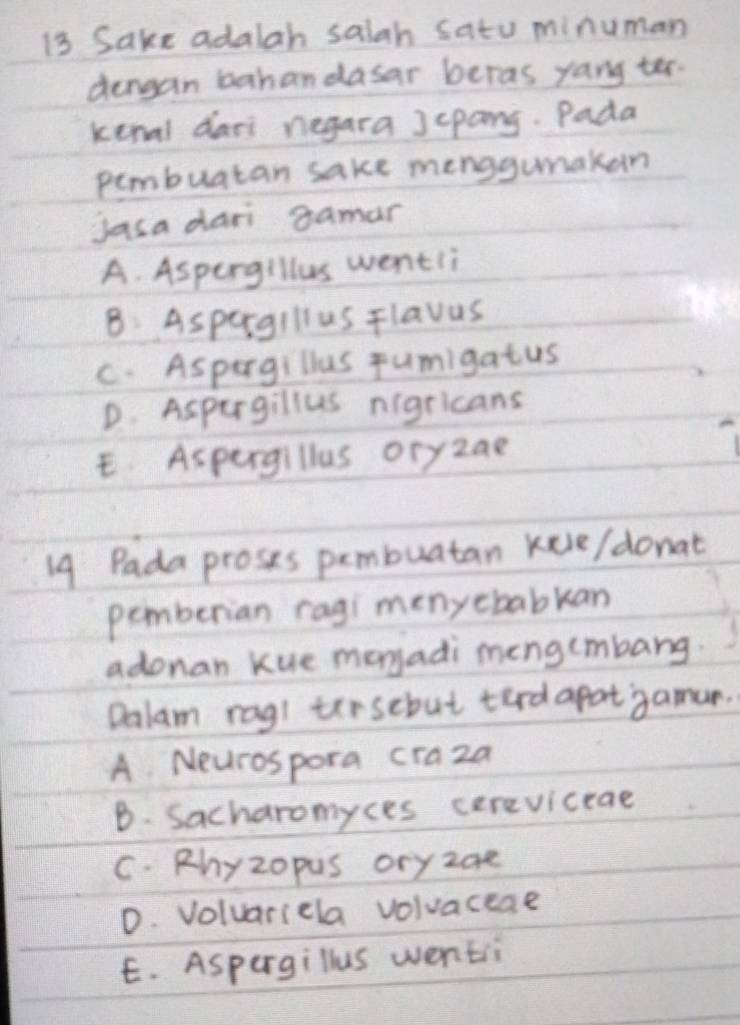 13 Sake adalah salah satu minuman
dengan bahan dasar beras yang ter-
kenal dari negara Jepang. Pada
pembuatan sake menggunakan
jasa dari jamur
A. Aspergillus wentii
B. Aspergillus flavus
C. Aspergillus fumigatus
D. Aspergillus nigricans
E. Aspergillus oryzae
19 Pada proses pembuatan kue/donat
pemberian ragi menyebabkan
adonan kue menjadi mengembang.
Dalam ragi tersebut terdapat jamur.
A. Neurospora craza
B. Sacharomyces cereviceae
C. Rhyzopus oryzae
D. Volvariela volvaceae
E. Aspergillus wentii